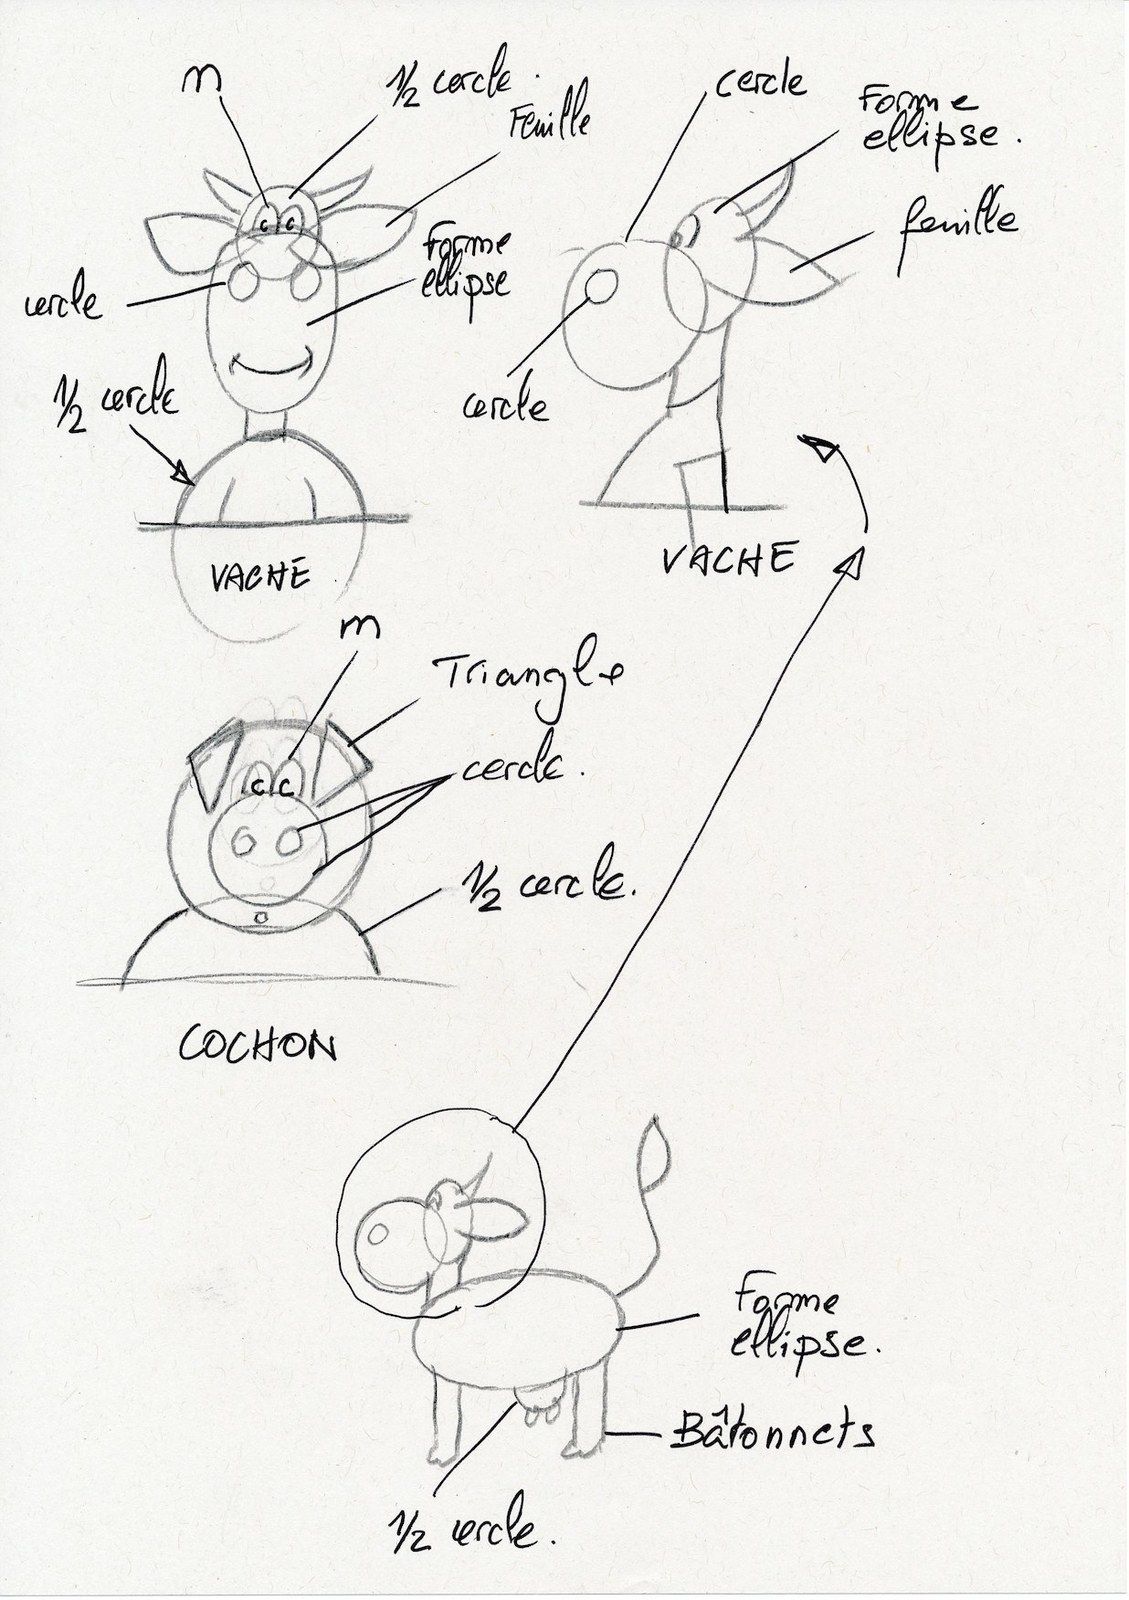 m
1/2 cercle.
Feuille
cercle
Forme
ellipse
1/2 cercle
VACHE
cercle
Forme
ellipse.
feuille
cercle
VACHE
m
Triangle
cercle.
1/2 cercle.
COCHON
Forme
ellipse.
Bâtonnets
1/2 cercle.